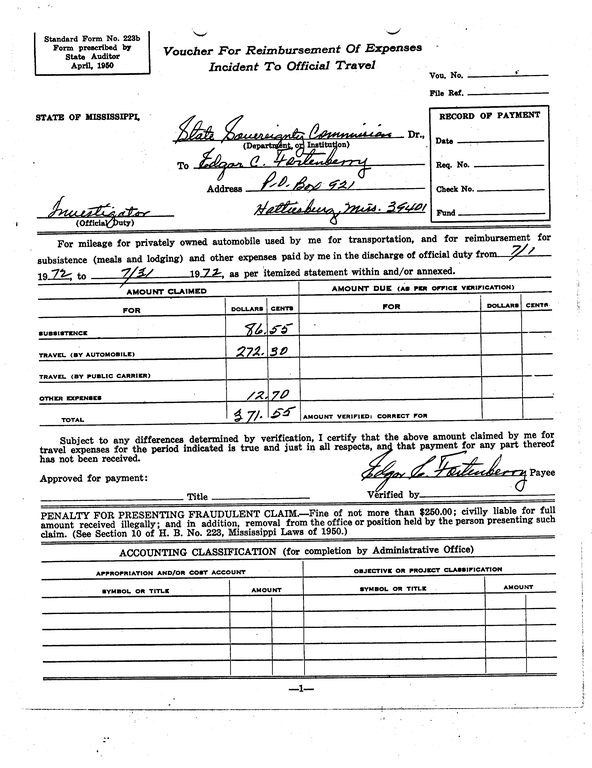 Standard Form No. 223b
Form prescribed by
State Auditor
April, 1950
Voucher For Reimbursement Of Expenses
Incident To Official Travel
Vou. No.
File Ref.
STATE OF MISSISSIPPI,
State Sovereignty Commission Dr.,
(Department, or Institution)
To Edgar C. Fortenberry
Address P.O. Box 921
Hattiesburg, Miss. 39401
Investigator
(Official Duty)
RECORD OF PAYMENT
Date
Req. No.
Check No.
Fund
For mileage for privately owned automobile used by me for transportation, and for reimbursement for
subsistence (meals and lodging) and other expenses paid by me in the discharge of official duty from 7/1
1972, to 7/31 1972, as per itemized statement within and/or annexed.
AMOUNT CLAIMED AMOUNT DUE (AS PER OFFICE VERIFICATION)
FOR DOLLARS CENTS FOR DOLLARS CENTS
SUBSISTENCE 86.55
TRAVEL (BY AUTOMOBILE) 272.30
TRAVEL (BY PUBLIC CARRIER)
OTHER EXPENSES 12.70
TOTAL 371.55 AMOUNT VERIFIED: CORRECT FOR
Subject to any differences determined by verification, I certify that the above amount claimed by me for
travel expenses for the period indicated is true and just in all respects, and that payment for any part thereof
has not been received.
Edgar C. Fortenberry Payee
Approved for payment:
Title Verified by
PENALTY FOR PRESENTING FRAUDULENT CLAIM.—Fine of not more than $250.00; civilly liable for full
amount received illegally; and in addition, removal from the office or position held by the person presenting such
claim. (See Section 10 of H. B. No. 223, Mississippi Laws of 1950.)
ACCOUNTING CLASSIFICATION (for completion by Administrative Office)
APPROPRIATION AND/OR COST ACCOUNT OBJECTIVE OR PROJECT CLASSIFICATION
SYMBOL OR TITLE AMOUNT SYMBOL OR TITLE AMOUNT
—1—